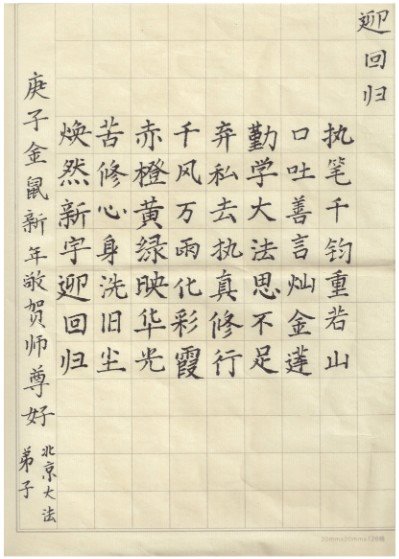 迎回归
执笔千钧重若山
口吐善言灿金莲
勤学大法思不足
弃私去执真修行
千风万雨化彩霞
赤橙黄绿映华光
苦修心身洗旧尘
焕然新字迎回归
庚子金鼠新年敬贺师尊好
北京大法
弟子
20mm×20mm×126格